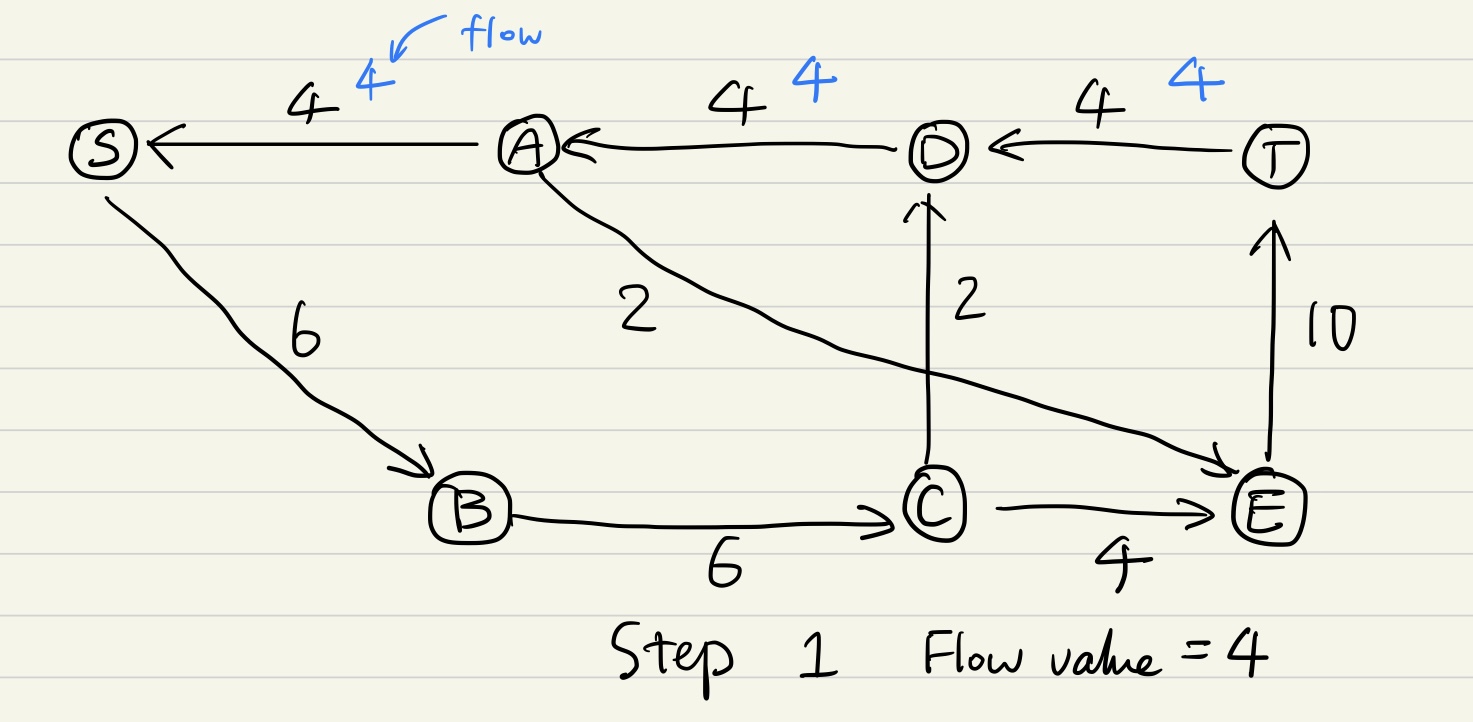 flow
4 4 4 4 4 4
S A D T
6 2 2 10
B C E
6 4
Step 1 Flow value = 4